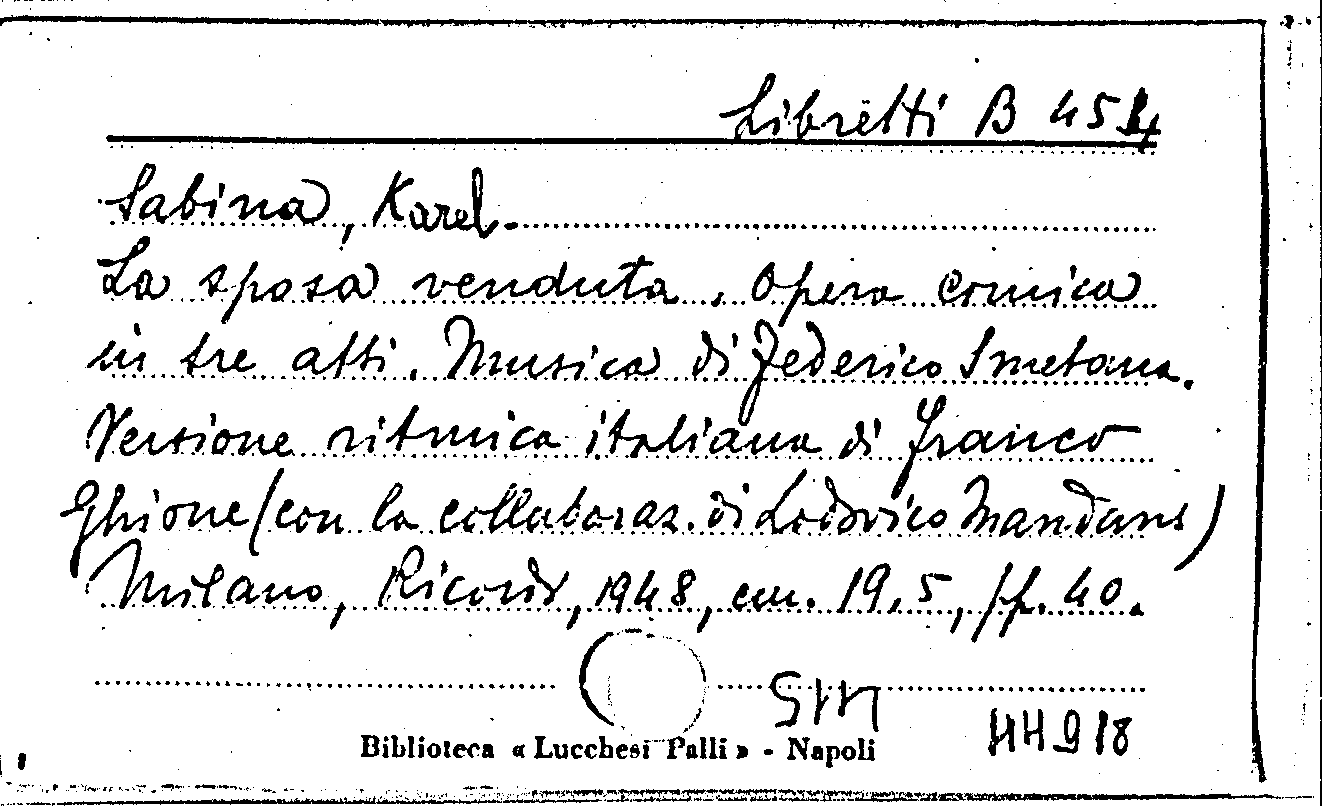 Libretti B 454
Sabina, Karel.
La sposa venduta. Opera comica
in tre atti. Musica di Federico Smetana.
Versione ritmica italiana di Franco
Ghione (con la collaboraz. di Lodovico Mandans)
Milano, Ricordi, 1948, cm. 19,5, pp. 40.
Biblioteca « Lucchesi Palli » - Napoli